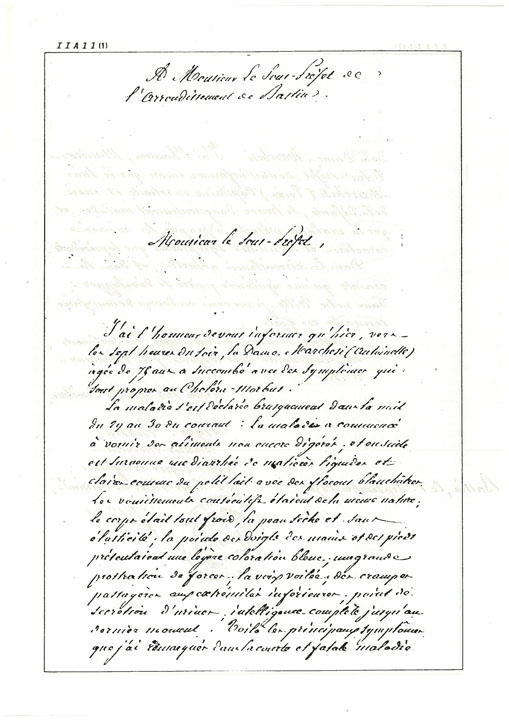 IIA11(1)
A Monsieur le Sous-Préfet de
l'arrondissement de Bastia.
Monsieur le Sous-Préfet,
J'ai l'honneur de vous informer qu'hier, vers
les sept heures du soir, la Dame Marchesi (Antoinette)
agée de 78 ans a succombé avec des symptômes qui
sont propres au Choléra-morbus.
La maladie s'est déclarée brusquement dans la nuit
du 29 au 30 du courant : la malade a commencé
à vomir des aliments non encore digérés, et ensuite
est survenue une diarrhée de matières liquides et
claires comme du petit lait avec des flocons blanchâtres.
Les vomissements consécutifs étaient de la même nature;
le corps était tout froid, la peau sèche et sans
élasticité; la pointe des doigts des mains et des pieds
présentaient une légère coloration bleue; une grande
prostration de forces; la voix voilée; des crampes
passagères aux extrémités inférieures; point de
secrétion d'urines; intelligence complète jusqu'au
dernier moment. Voilà les principaux symptômes
que j'ai remarqués dans la courte et fatale maladie